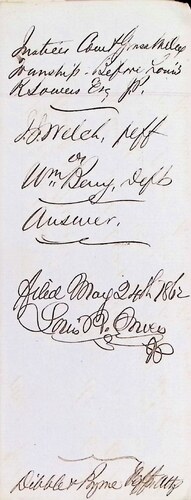 Justices Court Grass Valley
Township - Before Louis
R Sowers Esq JP.
J. J. Welch, peff
vs
Wm Berry, deft
Answer.
Filed May 24th 1862
Louis R. Sowers
Dibble & Byrne